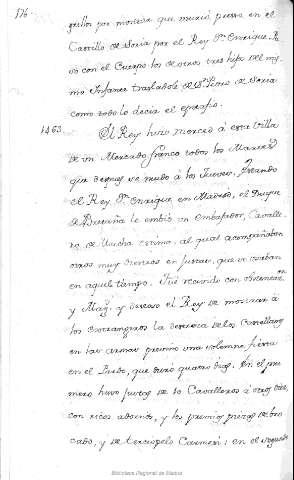 176
grillos por montera que murió preso en el
Castillo de Soria por el Rey Dn. Enrique.
con el Cuerpo los de otros tres hijos del mis
mo Infante trasladose de Sto. Domo de Soria
como todo lo decia el epitafio.
1463. El Rey hizo merced á esta Villa
de un Mercado franco todos los Martes
que despues se mudó á los Jueves. Estando
el Rey Dn. Enrique en Madrid, el Duque
de Bretaña le embió un Embajador, Cavalle
ro de mucha estima, al qual acompañaban
otros muy diestros en justas, que se usaban
en aquel tiempo. Fué recivido con
y Mag. y deseoso el Rey de mostrar á
los extrangeros la destreza de los Castellanos
en las armas previno una solemne fiesta
en el Pardo, que duró quatro dias. En el pri
mero huvo justas de 20 Cavalleros á
con ricos adornos, y los premios piezas de bro
cado, y de terciopelo Carmesí: en el segundo
Biblioteca Regional de Madrid